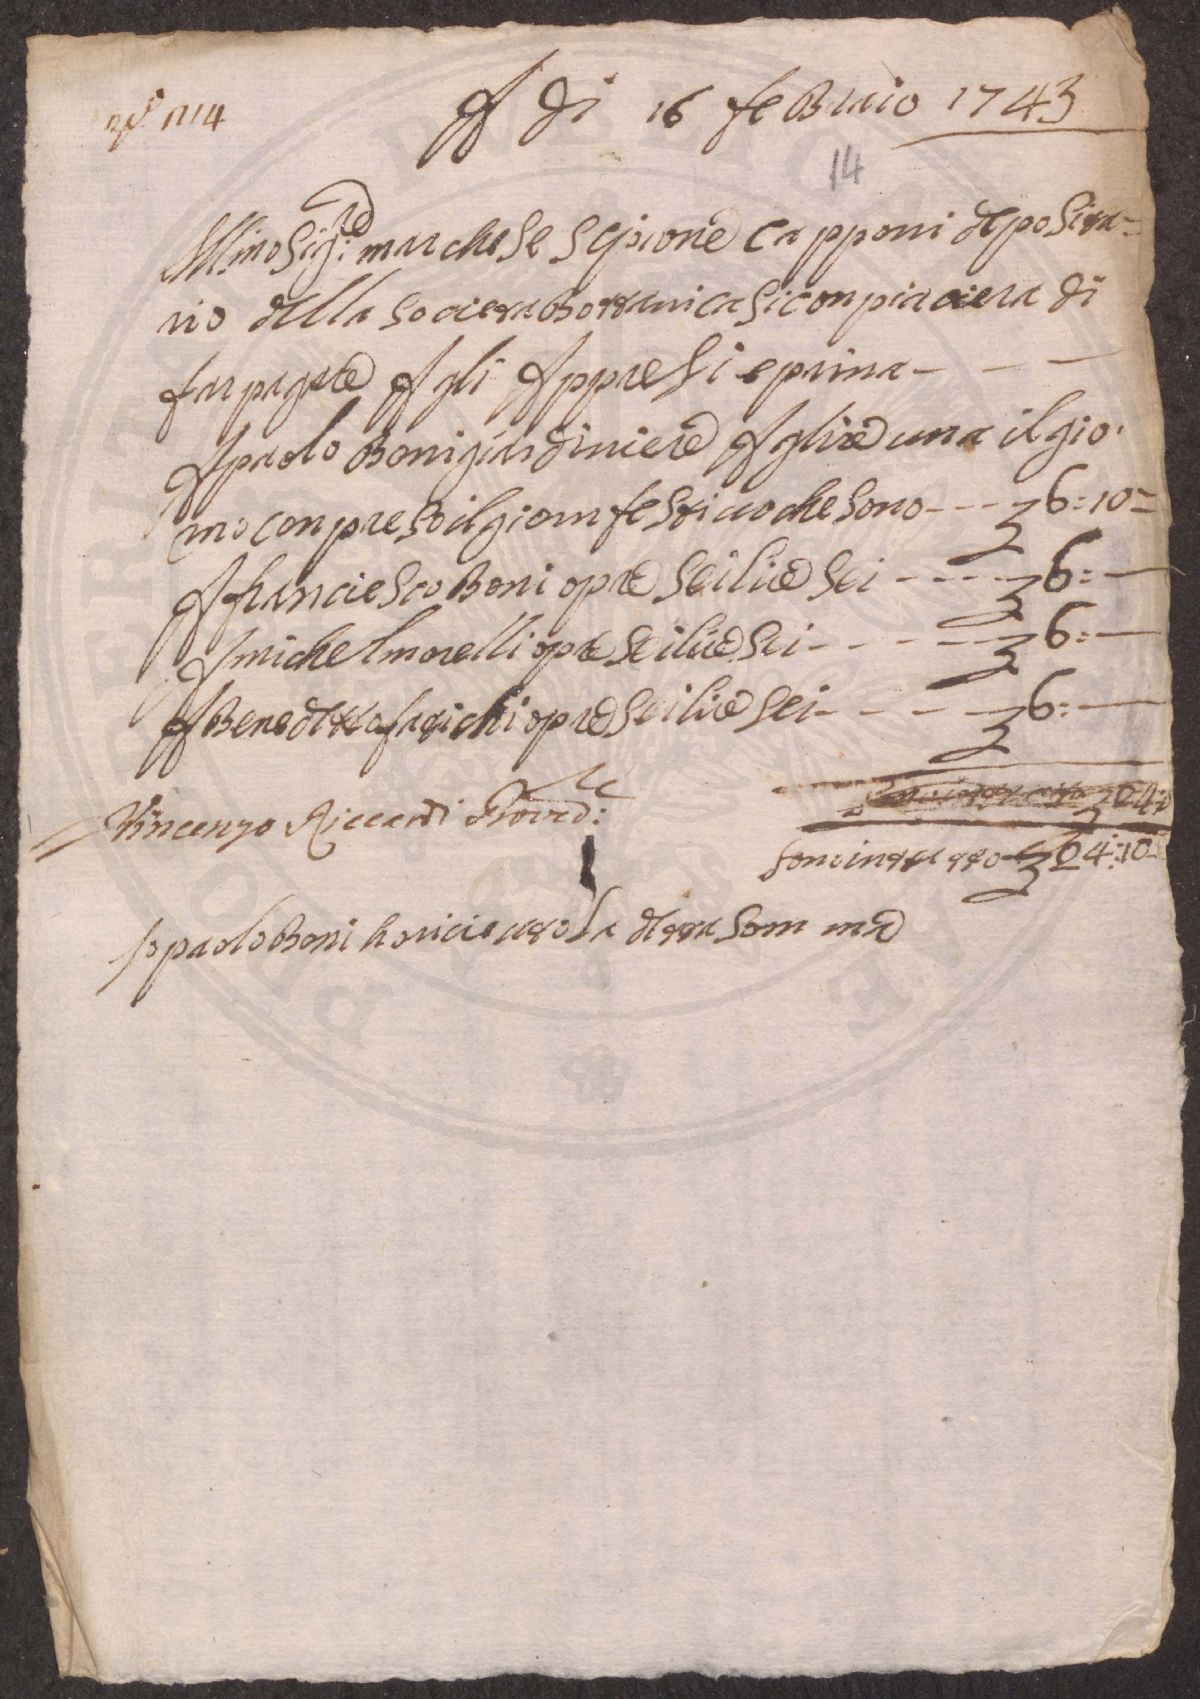 A di 16 feBraio 1743
14
Illmo Sig:re marchese Scipione Capponi deposita=
rio della societa Bottanica si conpiaciera di
far pagare A gli Appresi e prima - - -
A paolo Boni giardiniere A lire una il gio
rno conpreso il giorn festiuo che sono - - - £ 6:10 =
A franciesco Boni opre sei lire sei - - - - £ 6: —
A michel morelli opre sei lire sei - - - - £ 6: —
A Benedetto farichi opre sei lire sei - - - - £ 6: —
Vincenzo Riccardi Proved:re
sono in tutto £ 24:10
Io paolo Boni ho riceuto la detta somma